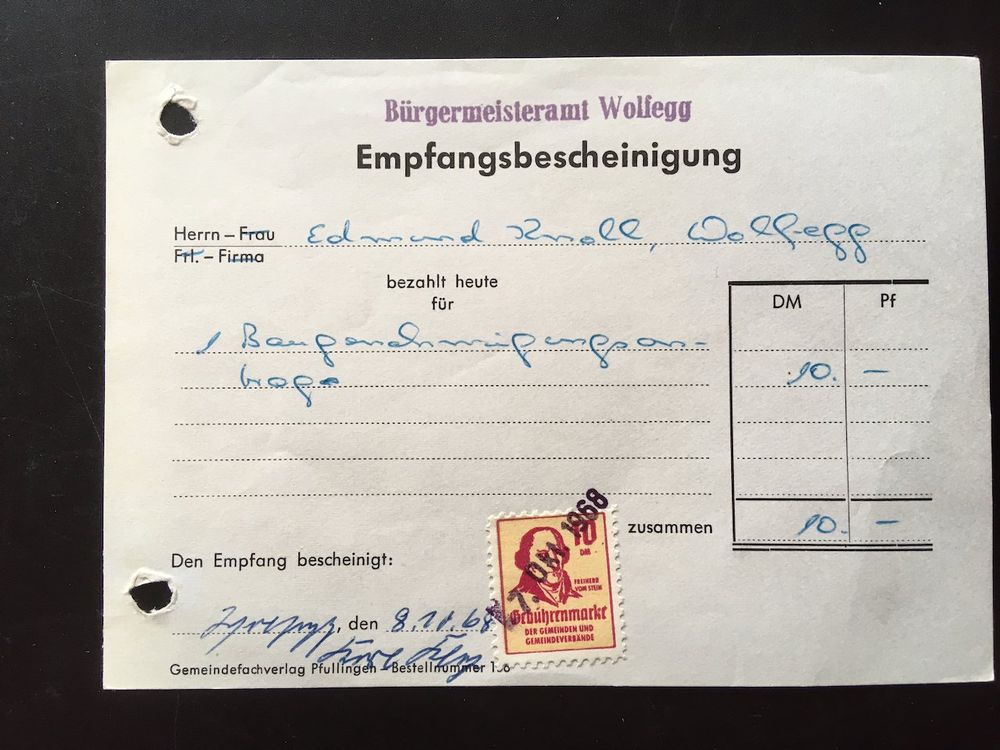 Bürgermeisteramt Wolfegg
Empfangsbescheinigung
Herrn – Frau Edmund Knoll, Wolfegg
Frl. – Firma
bezahlt heute
für
DM Pf
1 Baugenehmigungsan-
trage 10. –
zusammen 10. –
Den Empfang bescheinigt:
, den 8.10.68
Gemeindefachverlag Pfullingen – Bestellnummer
7. Okt. 1968
10
DM
FREIHERR
VOM STEIN
Gebührenmarke
DER GEMEINDEN UND
GEMEINDEVERBÄNDE